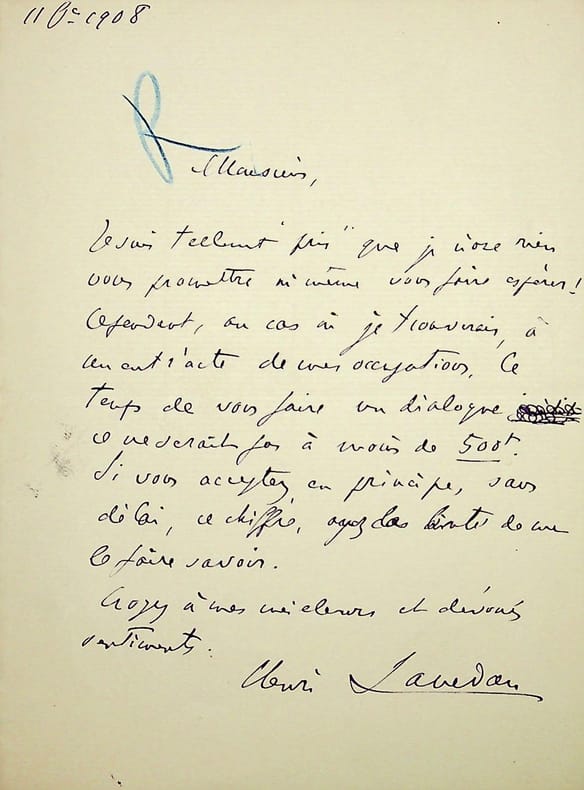 11 Xbre 1908
R
Monsieur,
Je suis tellement "pris" que je n'ose rien
vous promettre ni même vous faire espérer !
Cependant, au cas où je trouverais, à
un entr'acte de mes occupations, le
temps de vous faire un dialogue
ce ne serait pas à moins de 500f.
Si vous acceptez en principe, sans
délai, ce chiffre, ayez la bonté de me
le faire savoir.
Croyez à mes meilleurs et dévoués
sentiments.
Henri Lavedan